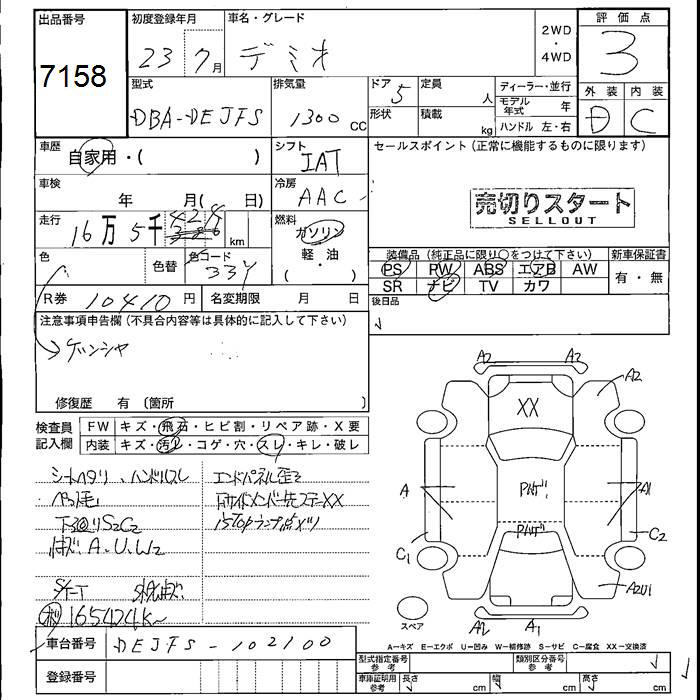 出品番号
7158
初度登録年月
23 7月
車名・グレード
デミオ
2WD
・
4WD
評価点
3
外装 内装
D C
型式
DBA-DEJFS
排気量
1300 cc
ドア 5
形状
定員 人
積載 kg
ディーラー・並行
モデル年式 年
ハンドル 左・右
車歴
自家用・( )
シフト
IAT
セールスポイント (正常に機能するものに限ります)
売切りスタート
SELLOUT
車検
年 月( 日)
冷房
AAC
走行
16万5千 km
燃料
ガソリン
軽・油
( )
色
色替
色コード
33Y
装備品 (純正品に限り○をつけて下さい)
PS PW ABS エアB AW
SR ナビ TV カワ
新車保証書
有・無
R券 10410円
名変期限 月 日
後日品
注意事項申告欄 (不具合内容等は具体的に記入して下さい)
ゲンシャ
修復歴 有 〔箇所 〕
検査員記入欄
FW キズ・飛石・ヒビ割・リペア跡・X要
内装 キズ・汚レ・コゲ・穴・スレ・キレ・破レ
シートヘタリ、ハンドルスレ
ペット毛
下回りS2C2
A.U.W2
165424K~
エンドパネル歪2
車台番号 DEJFS-102100
登録番号
A2 A2
A2
XX
A
A1
C1
C2
A2U1
A2 A1
スペア
A-キズ E-エクボ U-凹み W-補修跡 S-サビ C-腐食 XX-交換済
型式指定番号 参考
類別区分番号 参考
車庫証明用 参考
長さ cm
幅 cm
高さ cm